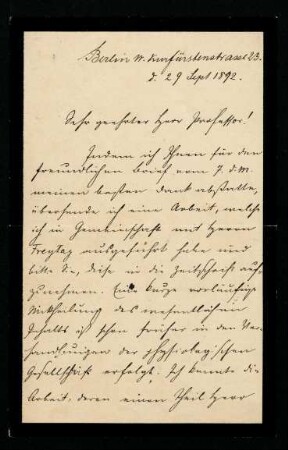 Berlin W. Kurfürstenstrasse 23.
d. 29 Sept 1892.
Sehr geehrter Herr Professor!
Indem ich Ihnen für den
freundlichen Brief vom 7. d. M.
meinen besten Dank abstatte,
übersende ich eine Arbeit, welche
ich in Gemeinschaft mit Herrn
Freytag ausgeführt habe und
bitte Sie, diese in die Zeitschrift auf-
zunehmen. Eine kurze vorläufige
Mittheilung des wesentlichen
Inhalts ist schon früher in den Ver-
handlungen der physiologischen
Gesellschaft erfolgt. Ich konnte die
Arbeit, deren einen Theil Herr